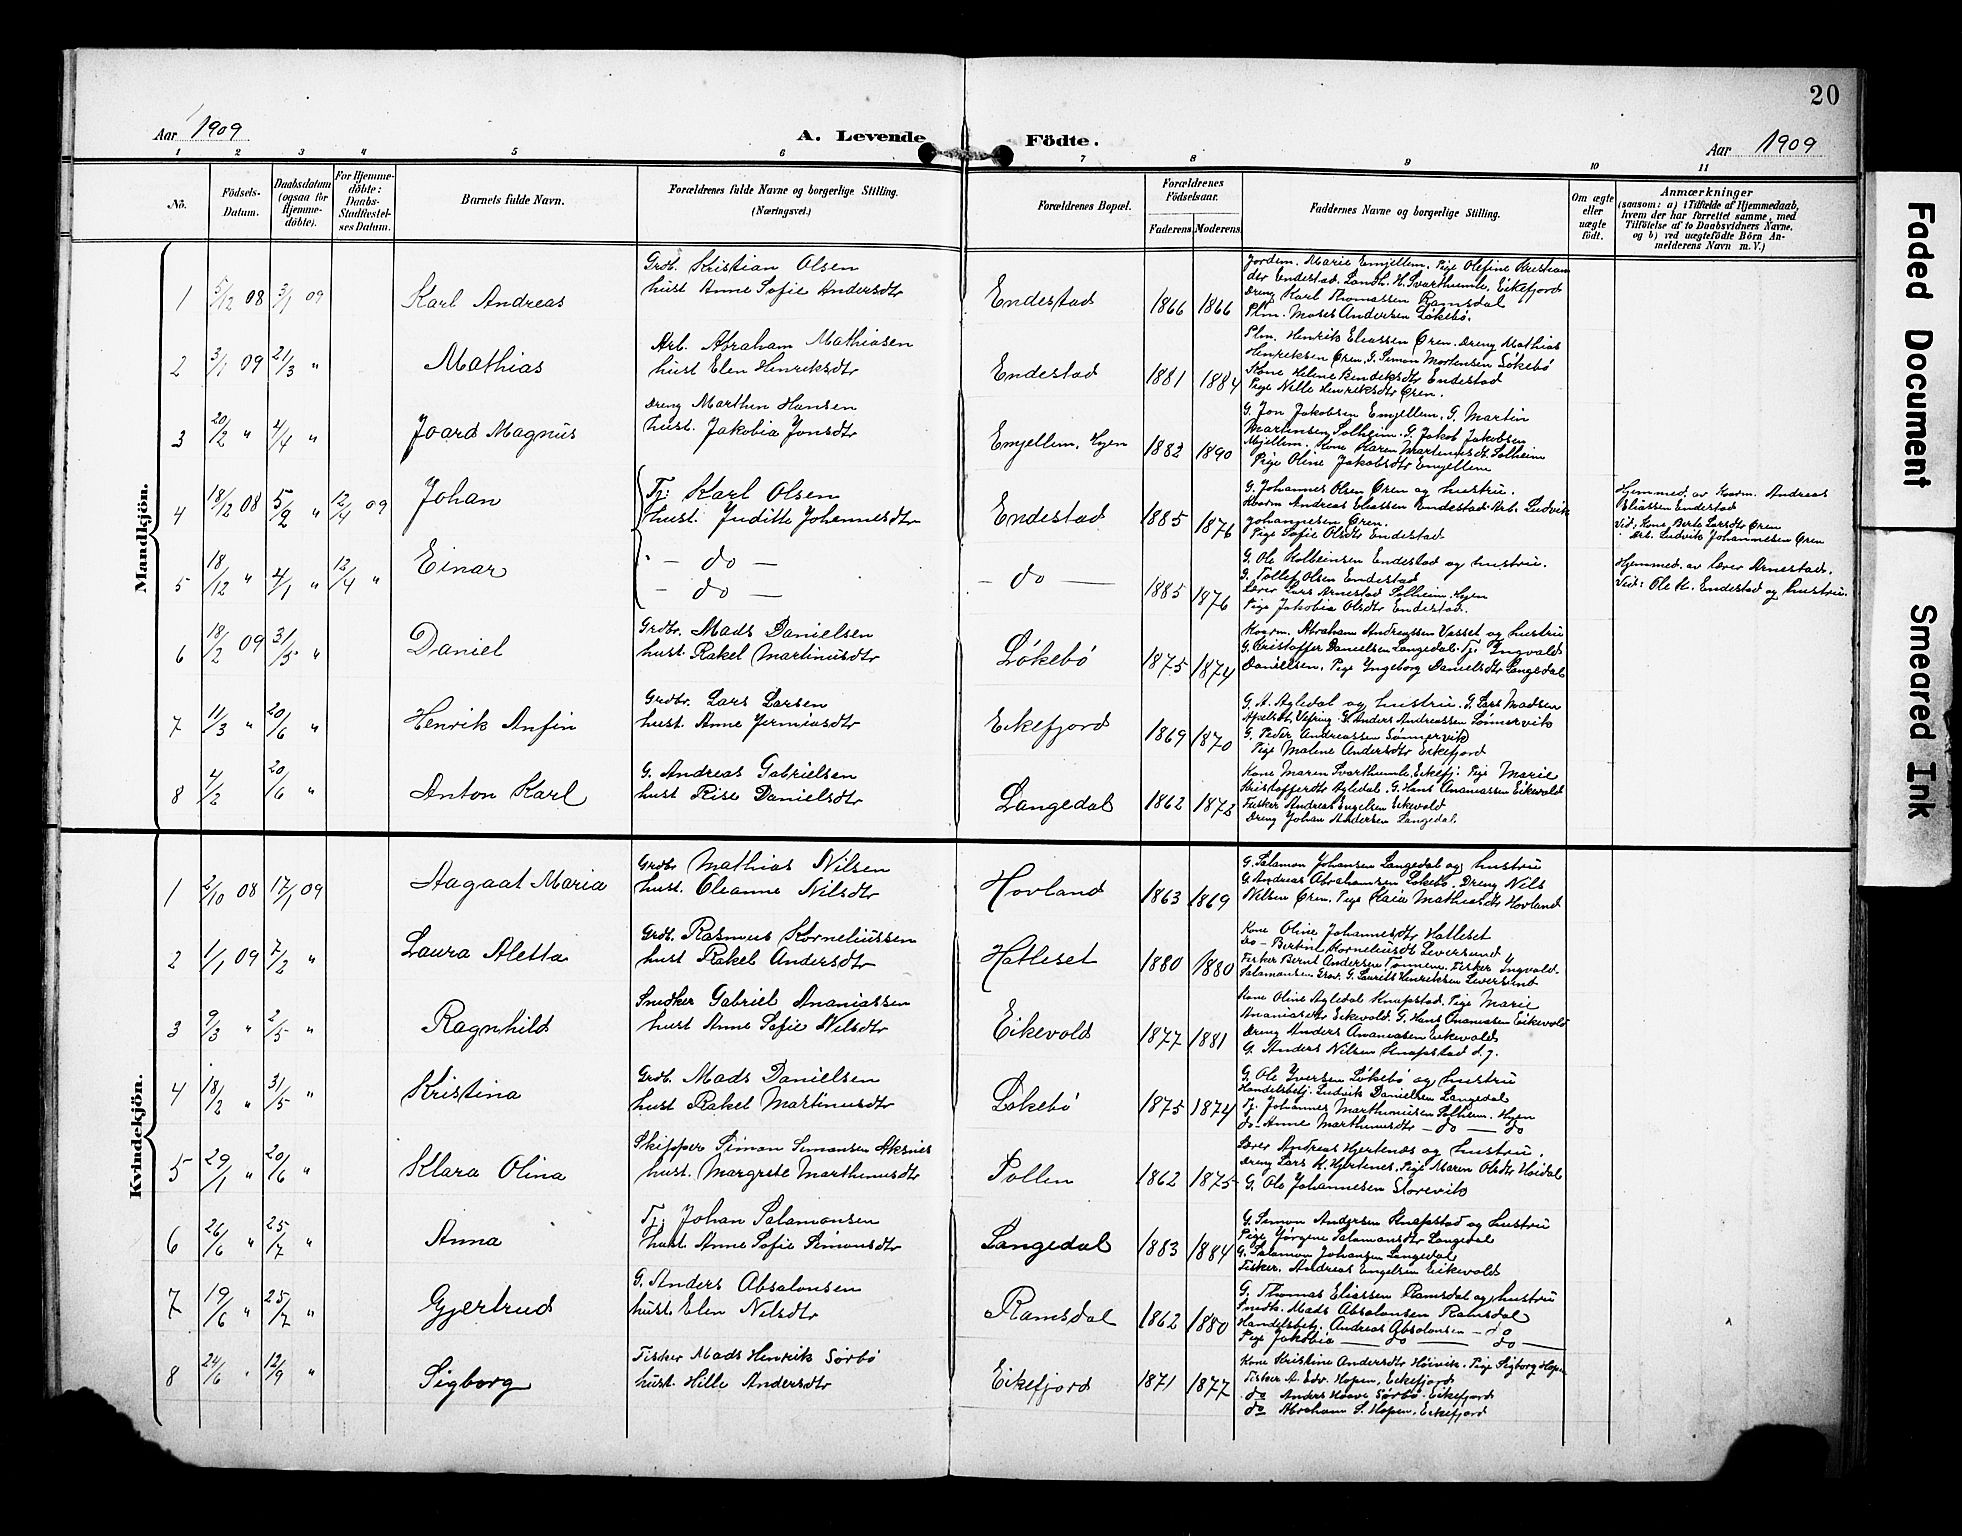 20
Aar 1909
A. Levende Födte.
Aar 1909
1 2 3 4 5 6 7 8 9 10 11
No.
Födsels-
Datum.
Daabsdatum
(ogsaa for
Hjemme-
döbte).
For Hjemme-
döbte:
Daabs-
Stadfæstel-
ses Datum.
Barnets fulde Navn.
Forældrenes fulde Navne og borgerlige Stilling.
(Næringsvei.)
Forældrenes Bopæl.
Forældrenes
Födselsaar.
Faderens. Moderens.
Faddernes Navne og borgerlige Stilling.
Om ægte
eller
uægte
födt.
Anmærkninger
(saasom: a) i Tilfælde af Hjemmedaab,
hvem der har forrettet samme, med
Tilföielse af to Daabsvidners Navne,
og b) ved uægtefödte Börn An-
melderens Navn m. V.)
Mandkjön.
1 5/12 08 3/1 09 Karl Andreas
Grdb. Kristian Olsen
hust Anne Sofie Andersdtr
Endestad 1866 1866
Jordem. Marie Emjellem. Pige Olefine Kristian
der Endestad. Landh. H. Svarthumle, Eikefjord
Dreng Karl Thomassen Ramsdal
Plm. Moses Andersen Løkebø.
2 3/1 09 21/3 " Mathias
Arb. Abraham Mathiasen
hust Elen Henriksdtr
Endestad 1881 1884
Plm. Henrik Eliassen Øren. Dreng Mathias
Henriksen Øren. G. Simon Mortensen Løkebø
Kone Helene Bendiksdtr Endestad
Pige Nille Henriksdtr Øren.
3 20/2 " 4/4 " Joard Magnus
Dreng Marthin Hansen
hust. Jakobia Jonsdtr
Emjellem. Hyen 1882 1890
G. Jon Jakobsen Emjellem. G. Martin
Martinsen Solheim. G. Jakob Jakobsen
Mjellem. Kone Karen Martinusdt. Solheim
Pige Oline Jakobsdtr Emjellem
4 18/12 08 5/2 " 12/4 09 Johan
Tj: Karl Olsen
hust. Juditte Johannesdtr
Endestad 1885 1876
G. Johannes Olsen Øren og hustru.
Kvarm Andreas Eliassen Endestad. Arb. Ludvik
Johannesen Øren.
Pige Sofie Olsdtr Endestad
Hjemmed. av Kvarm. Andreas
Eliassen Endestad
Vid: Kone Berte Larsdtr Øren
" Arb. Ludvik Johannesen Øren
5 18/12 " 4/1 " 12/4 " Einar
" - do -
- do -
- do - 1885 1876
G. Ole Kolbeinsen Endestad og hustru.
G. Tollef Olsen Endestad
Lærer Lars Arnestad Solheim. Hyen
Pige Jakobia Olsdtr Endestad.
Hjemmed. av lærer Arnestad.
Vid: Ole K. Endestad og hustru.
6 18/2 09 31/5 " Daniel
Grdbr. Mads Danielsen
hust. Rakel Martinusdtr
Løkebø 1875 1874
Kvarm. Abraham Andreassen Vasset og hustru
G. Kristoffer Danielsen Langedal. Tj: Yngvald
Danielsen. Pige Yngeborg Danielsdtr Langedal
7 11/3 " 20/6 " Henrik Anfin
Grdbr. Lars Larsen
hust. Anne Jermiasdtr
Eikefjord 1869 1870
G. A. Agledal og hustru. G. Lars Madsen
Apelset, Vefring. G. Anders Andreassen Sønnervik
G. Peder Andreassen Sønnervik
Pige Malene Andersdtr Eikefjord
8 4/2 20/6 " Anton Karl
G. Andreas Gabrielsen
hust Rise Danielsdtr
Langedal 1862 1873
Kone Maren Svarthumle, Eikefj: Pige Marie
Kristoffersdtr Agledal. G. Hans Ananiassen Eikevold
Fisker Andreas Engelsen Eikevold
Dreng Johan Andersen Langedal.
Kvindekjön.
1 2/10 08 17/1 09 Aagaat Maria
Grdbr Mathias Nilsen
hust. Oleanne Nilsdtr
Hovland 1863 1869
G. Salamon Johansen Langedal og hustru
G. Andreas Abrahamsen Løkebø. Dreng Nils
Nilsen Øren. Pige Kaia Mathiasdtr Hovland
2 1/1 09 7/2 " Laura Aletta
Grdb. Rasmus Korneliussen
hust Rakel Andersdtr
Hatleset 1880 1880
Kone Oline Johannesdtr Hatleset
do - Bertine Korneliusdt Leversund
Fisker Bernt Andersen Tønnene. Fisker Yngvald
Salamonsen Grov. G. Laurits Henriksen Leversund
3 9/3 " 2/5 " Ragnhild
Snedker Gabriel Ananiassen
hust Anne Sofie Nilsdtr
Eikevold 1877 1881
Kone Oline Agledal Knapstad. Pige Marie
Ananiasdtr Eikevold. G. Hans Ananiasen Eikevold
Dreng Anders Ananiasen Eikevold
G. Anders Nilsen Knapstad d. y.
4 18/2 " 31/5 " Kristina
Grdb. Mads Danielsen
hust Rakel Martinusdtr
Løkebø 1875 1874
G. Ole Yversen Løkebø og hustru
Handelsbetj. Ludvik Danielsen Langedal
Tj. Johannes Marthinusen Solheim. Hyen
do. Anne Marthinusdtr - do - do
5 29/1 " 20/6 " Klara Olina
Skipper Simon Simonsen Aksnes
hust. Margrete Marthinusdtr
Pollen 1862 1875
Lærer Andreas Hjertenes og hustru.
Dreng Lars K. Hjertenes. Pige Maren Olsdtr Høidal
G. Ole Johannesen Storevik
6 26/6 " 25/7 " Anna
Tj. Johan Salamonsen
hust. Anne Sofie Simonsdtr
Langedal 1883 1884
G. Simon Andersen Knapstad og hustru
Pige Jørgine Salamonsdtr Langedal
G. Salamon Johansen Langedal
Fisker. Andreas Engelsen Eikevold
7 19/6 " 25/7 " Gjertrud
G. Anders Absalonsen
hust. Elen Nilsdtr
Ramsdal 1862 1880
G. Thomas Eliassen Ramsdal og hustru
Snedk. Mads Absalonsen Ramsdal
Handelsbetj. Andreas Absalonsen - do
Pige Jakobia - do - do -
8 24/6 " 12/9 " Sigborg
Fisker Mads Henrik Sørbø
hust. Hille Andersdtr
Eikefjord 1871 1877
Kone Kristine Andersdtr Høivik. Pige Sigborg Hopen
Fisker A. Edv. Hopen, Eikefjord
do Anders Haave Sørbø. Eikefjord
do Abraham S. Hopen. Eikefjord
Faded Document
Smeared Ink